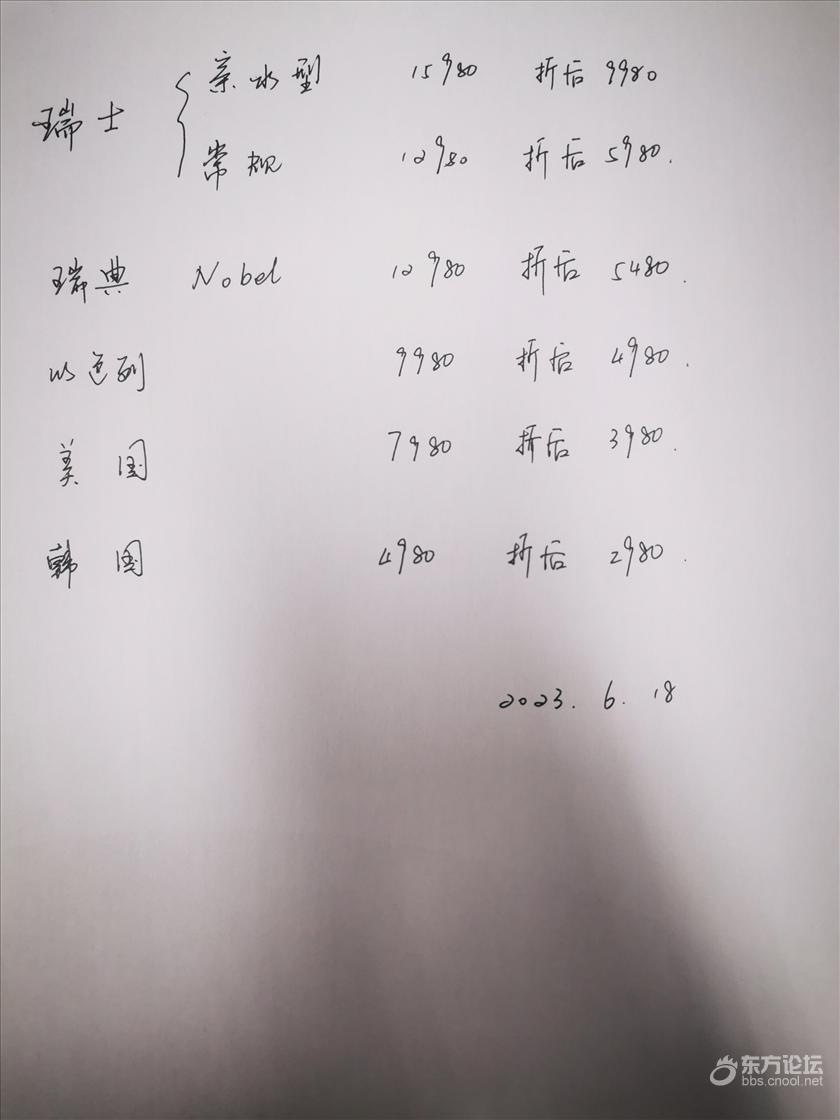 瑞士 { 亲水型 15980 折后 9980
常规 12980 折后 5980.
瑞典 Nobel 12980 折后 5480.
以色列 9980 折后 4980.
美国 7980 折后 3980.
韩国 4980 折后 2980.
2023. 6. 18
东方论坛
bbs.cnool.net